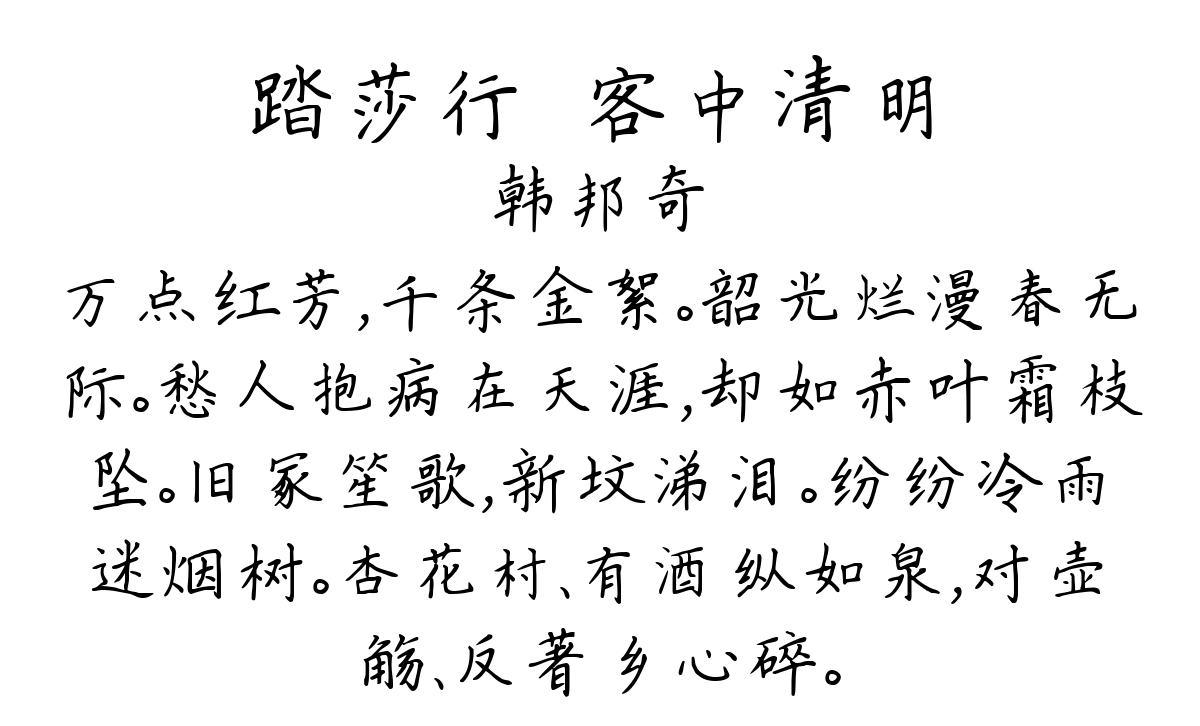 踏莎行 客中清明
韩邦奇
万点红芳,千条金絮。韶光烂漫春无
际。愁人抱病在天涯,却如赤叶霜枝
坠。旧冢笙歌,新坟涕泪。纷纷冷雨
迷烟树。杏花村、有酒纵如泉,对壶
觞、反著乡心碎。